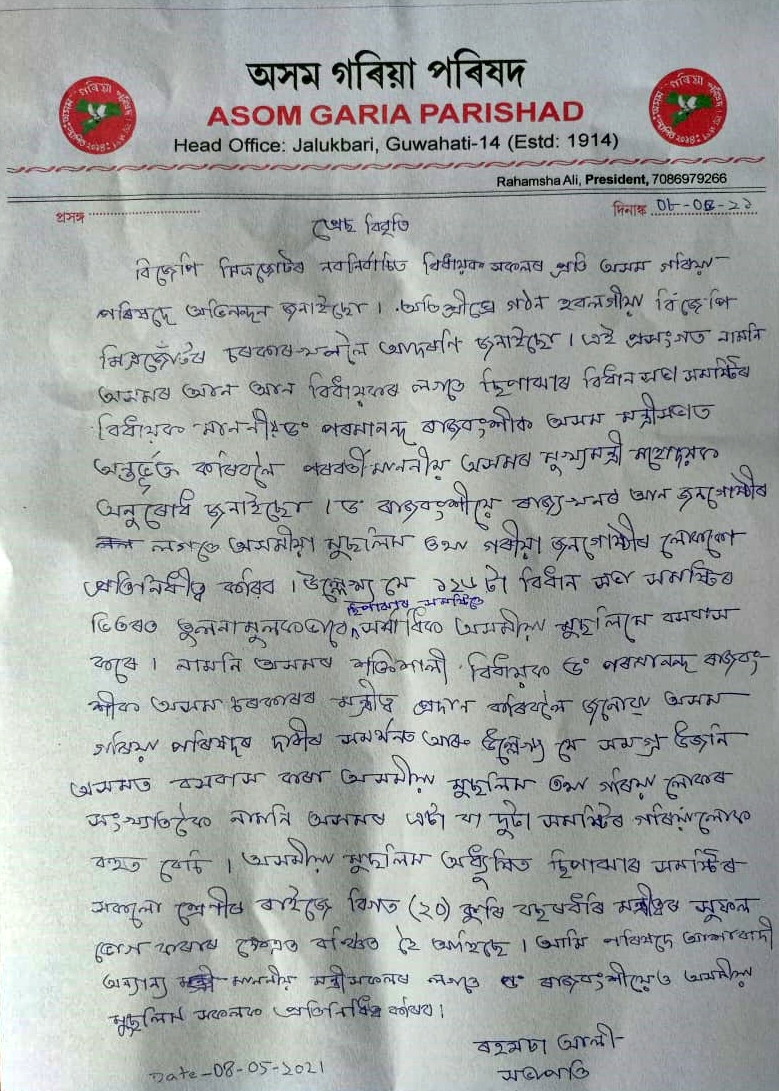 অসম গৰিয়া পৰিষদ
ASOM GARIA PARISHAD
Head Office: Jalukbari, Guwahati-14 (Estd: 1914)
Rahamsha Ali, President, 7086979266
প্ৰসঙ্গ
দিনাঙ্ক ০৮-০৫-২১
প্ৰেছ বিবৃতি
বিজেপি মিত্ৰজোটৰ নৱনিৰ্বাচিত বিধায়ক সকলৰ প্ৰতি অসম গৰিয়া
পৰিষদে অভিনন্দন জনাইছো। অতি শীঘ্ৰে গঠন হবলগীয়া বিজেপি
মিত্ৰজোঁটৰ চৰকাৰ খনলৈ আদৰণি জনাইছো। এই প্ৰসংগত নামনি
অসমৰ আন আন বিধায়কৰ লগতে ছিপাঝাৰ বিধান সভা সমষ্টিৰ
বিধায়ক মাননীয় ড° পৰমানন্দ ৰাজবংশীক অসম মন্ত্ৰীসভাত
অন্তৰ্ভূক্ত কৰিবলৈ পৰবৰ্তী মাননীয় অসমৰ মুখ্যমন্ত্ৰী মহোদয়ক
অনুৰোধ জনাইছো। ড° ৰাজবংশীয়ে ৰাজ্য খনৰ আন জনগোষ্ঠীৰ
লগতে অসমীয়া মুছলিম তথা গৰীয়া জনগোষ্ঠীৰ লোককো
প্ৰতিনিধীত্ব কৰিব। উল্লেখ্য যে ১২৬ টা বিধান সভা সমষ্টিৰ
ভিতৰত তুলনামুলকভাবে ছিপাঝাৰ সমষ্টিতে সৰ্বাধিক অসমীয়া মুছলিমে বসবাস
কৰে। নামনি অসমৰ শক্তিশালী বিধায়ক ড° পৰমানন্দ ৰাজবং-
শীক অসম চৰকাৰৰ মন্ত্ৰীত্ব প্ৰদান কৰিবলৈ জনোৱা অসম
গৰিয়া পৰিষদৰ দাবীৰ সমৰ্থনত আৰু উল্লেখ্য যে সমগ্ৰ উজনি
অসমত বসবাস কৰা অসমীয়া মুছলিম তথা গৰিয়া লোকৰ
সংখ্যাতকৈ নামনি অসমৰ এটা বা দুটা সমষ্টিৰ গৰিয়া লোক
বহুত বেচি। অসমীয়া মুছলিম অধ্যুষিত ছিপাঝাৰ সমষ্টিৰ
সকলো শ্ৰেণীৰ ৰাইজে বিগত (২০) কুৰি বছৰধৰি মন্ত্ৰীত্বৰ সুফল
ভোগ কৰাৰ ক্ষেত্ৰত বঞ্চিত হৈ আহিছে। আমি পৰিষদে আশাবাদী
অন্যান্য মাননীয় মন্ত্ৰীসকলৰ লগতে ড° ৰাজবংশীয়েও অসমীয়া
মুছলিম সকলক প্ৰতিনিধিত্ব কৰিব।
ৰহমচা আলী
সভাপতি
Date-08-05-2021